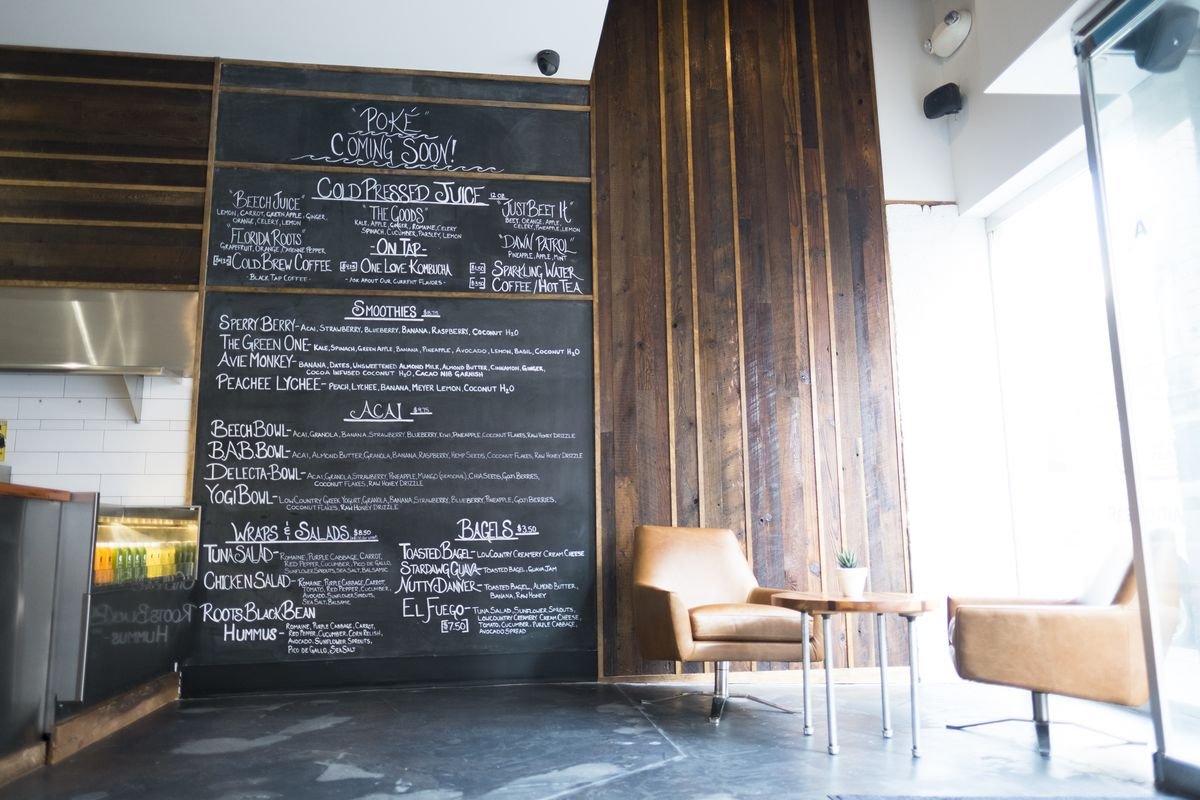 "POKÉ"
COMING SOON!
COLD PRESSED JUICE 12 OZ
"BEECH JUICE"
LEMON, CARROT, GREEN APPLE, GINGER,
ORANGE, CELERY, LEMON
"FLORIDA ROOTS"
GRAPEFRUIT, ORANGE, CAYENNE PEPPER
"THE GOODS"
KALE, APPLE, GINGER, ROMAINE, CELERY
SPINACH, CUCUMBER, PARSLEY, LEMON
"JUST BEET IT"
BEET, ORANGE, APPLE,
CELERY, PINEAPPLE, LEMON
"DAWN PATROL"
PINEAPPLE, APPLE, MINT
-ON TAP-
COLD BREW COFFEE
- BLACK TAP COFFEE -
ONE LOVE KOMBUCHA
- ASK ABOUT OUR CURRENT FLAVORS -
SPARKLING WATER
COFFEE/HOT TEA
SMOOTHIES $8.75
SPERRY BERRY- ACAI, STRAWBERRY, BLUEBERRY, BANANA, RASPBERRY, COCONUT H2O
THE GREEN ONE- KALE, SPINACH, GREEN APPLE, BANANA, PINEAPPLE, AVOCADO, LEMON, BASIL, COCONUT H2O
AVIE MONKEY- BANANA, DATES, UNSWEETENED ALMOND MILK, ALMOND BUTTER, CINNAMON, GINGER,
COCOA INFUSED COCONUT H2O, CACAO NIB GARNISH
PEACHEE LYCHEE- PEACH, LYCHEE, BANANA, MEYER LEMON, COCONUT H2O
ACAI $9.75
BEECH BOWL- ACAI, GRANOLA, BANANA, STRAWBERRY, BLUEBERRY, KIWI, PINEAPPLE, COCONUT FLAKES, RAW HONEY DRIZZLE
B.A.B. BOWL- ACAI, ALMOND BUTTER, GRANOLA, BANANA, RASPBERRY, HEMP SEEDS, COCONUT FLAKES, RAW HONEY DRIZZLE
DELECTA-BOWL- ACAI, GRANOLA, STRAWBERRY, PINEAPPLE, MANGO (SEASONAL), CHIA SEEDS, GOJI BERRIES,
COCONUT FLAKES, RAW HONEY DRIZZLE
YOGI BOWL- LOWCOUNTRY GREEK YOGURT, GRANOLA, BANANA, STRAWBERRY, BLUEBERRY, PINEAPPLE, GOJI BERRIES,
COCONUT FLAKES, RAW HONEY DRIZZLE
WRAPS & SALADS $8.50
TUNA SALAD- ROMAINE, PURPLE CABBAGE, CARROT,
RED PEPPER, CUCUMBER, PICO DE GALLO,
SUNFLOWER SPROUTS, SEA SALT, BALSAMIC
CHICKEN SALAD- ROMAINE, PURPLE CABBAGE, CARROT,
TOMATO, RED PEPPER, CUCUMBER,
AVOCADO, SUNFLOWER SPROUTS,
SEA SALT, BALSAMIC
ROOTS BLACK BEAN
HUMMUS- ROMAINE, PURPLE CABBAGE, CARROT,
RED PEPPER, CUCUMBER, CORN RELISH,
AVOCADO, SUNFLOWER SPROUTS,
PICO DE GALLO, SEA SALT
BAGELS $3.50
TOASTED BAGEL- LOWCOUNTRY CREAMERY CREAM CHEESE
STARDAWG GUAVA- TOASTED BAGEL, GUAVA JAM
NUTTY DANNER- TOASTED BAGEL, ALMOND BUTTER,
BANANA, RAW HONEY
EL FUEGO- TUNA SALAD, SUNFLOWER SPROUTS,
[$7.50] LOWCOUNTRY CREAMERY CREAM CHEESE,
TOMATO, CUCUMBER, PURPLE CABBAGE,
AVOCADO SPREAD